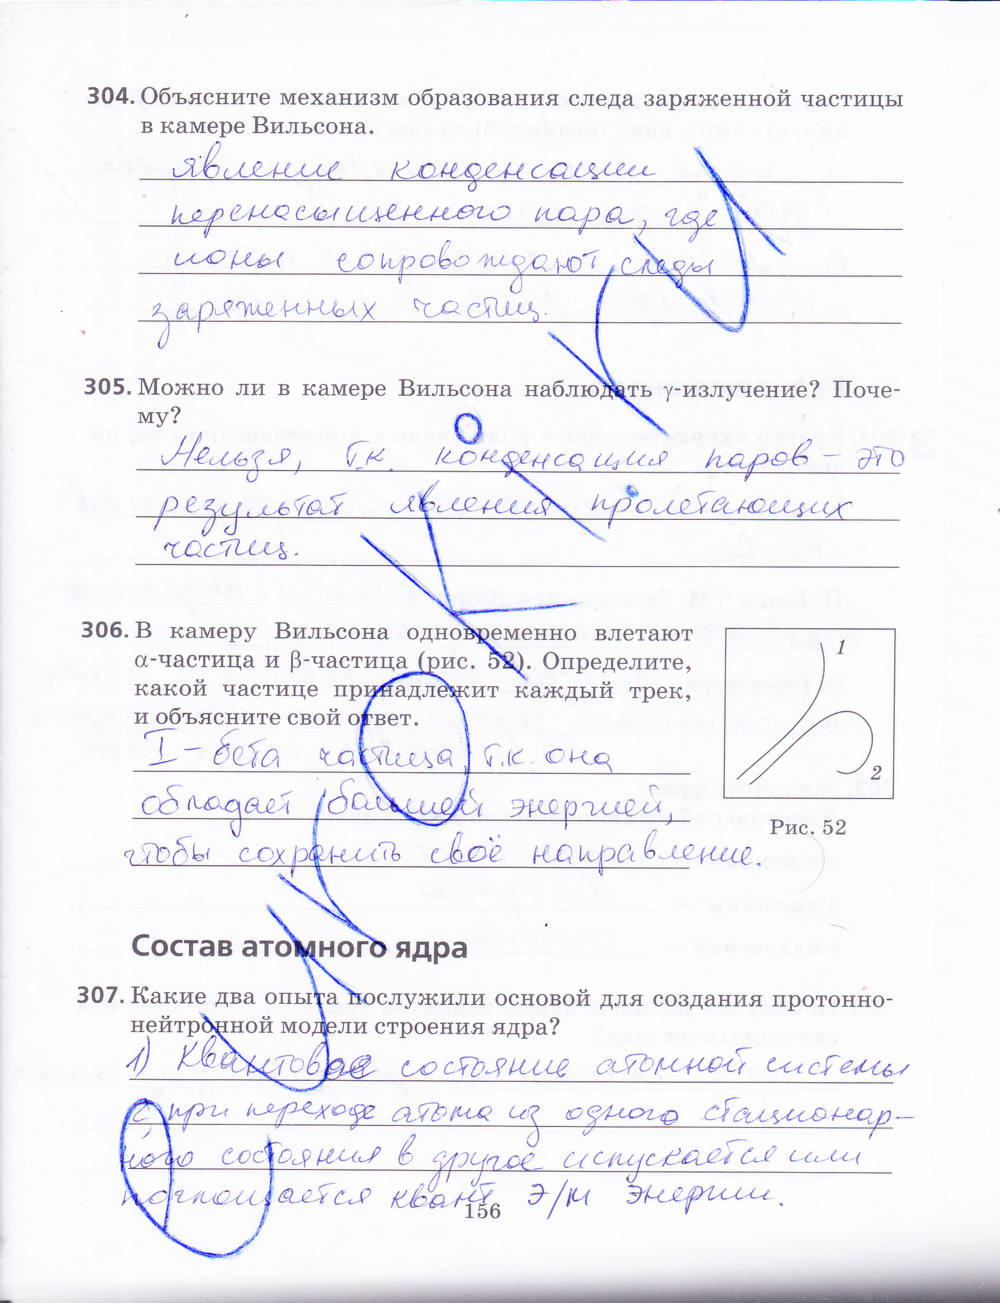 304. Объясните механизм образования следа заряженной частицы
в камере Вильсона.
явление конденсации
перенасыщенного пара, где
ионы сопровождают следы
заряженных частиц.
305. Можно ли в камере Вильсона наблюдать γ-излучение? Поче-
му?
Нельзя, т.к. конденсация паров – это
результат явления пролетающих
частиц.
306. В камеру Вильсона одновременно влетают
α-частица и β-частица (рис. 52). Определите,
какой частице принадлежит каждый трек,
и объясните свой ответ.
I – бета частица, т.к. она
обладает большей энергией,
чтобы сохранить своё направление.
1
2
Рис. 52
Состав атомного ядра
307. Какие два опыта послужили основой для создания протонно-
нейтронной модели строения ядра?
1) Квантовое состояние атомной системы
2) при переходе атома из одного стационар-
ного состояния в другое испускается или
поглощается квант э/м энергии.
156